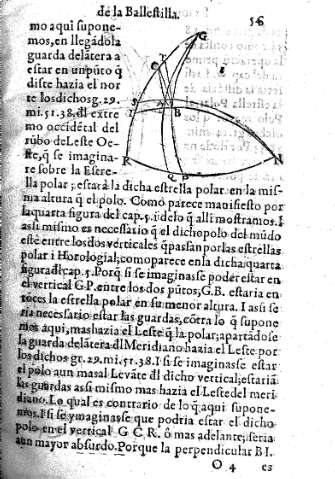 de la Ballestilla. 56
mo aqui supone-
mos, en llegãdo la
guarda delãtera a
estar en un pũto q̃
diste hazia el nor
te los dichos gr. 29.
mi. 51. 38. dl extre
mo occidẽtal del
rũbo de Leste Oe-
ste, q̃ se imagina-
re sobre la Estre-
lla polar; estarà la dicha estrella polar en la mis-
ma altura q̃ el polo. Como parece manifiesto por
la quarta figura del cap. 5. i de lo q̃ alli mostramos. I
assi mismo es necessario q̃ el dicho polo del mũdo
estè entre los dos verticales q̃ passan por las estrellas
polar i Horologial; como parece en la dicha quarta
figura dl cap. 5. Porq̃ si se imaginasse poder estar en
el vertical G P. entre los dos pũtos, G. B. estaria en-
toces la estrella polar en su menor altura. I assi se
ria necessario estar las guardas, cõtra lo q̃ supone
mos aqui, mas hazia el Leste q̃ la polar; apartãdo se
la guarda delãtera dl Meridiano hazia el Leste por
los dichos gr. 29. mi. 51. 38. I si se imaginasse estar
el polo aun mas al Levãte dl dicho vertical; estariã
las guardas assi mismo mas hazia el Leste del meri-
diano. Lo qual es contrario de lo q̃ aqui supone-
mos. I si se ymaginasse que podria estar el dicho
polo en el vertical G C R. ô mas adelante; seria
aun mayor absurdo. Porque la perpendicular B I.
O 4 es